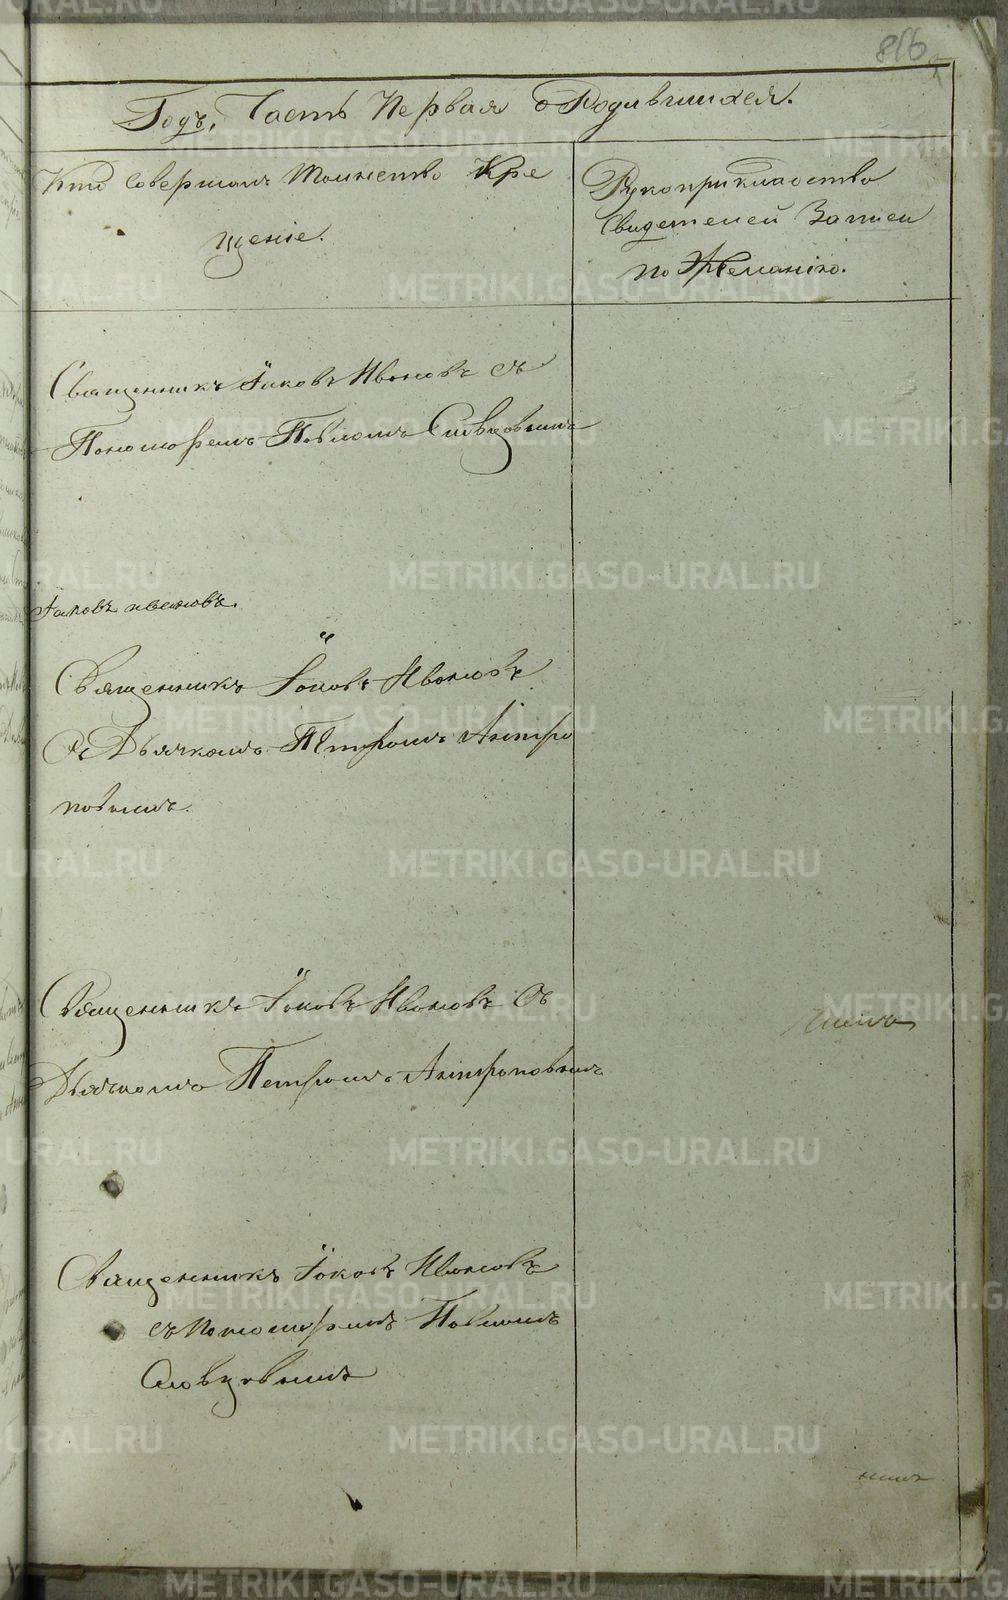 856
Годъ, Часть Первая о Родившихся.
Кто Совершалъ Таинство Кре
щенiе.
Рукоприкладство
Свидетелей Записи
по Желанiю.
Священникъ Iаковъ Ивановъ съ
Пономаремъ Павломъ Словцовымъ
Iаковъ ивановъ.
Священникъ Iаковъ Ивановъ
съ Дьячкомъ Петромъ Антро
повымъ.
Священникъ Iаковъ Ивановъ съ
Дьячкомъ Петромъ Антроповымъ
Священникъ Iаковъ Ивановъ
съ Пономаремъ Павломъ
Словцовымъ
METRIKI.GASO-URAL.RU